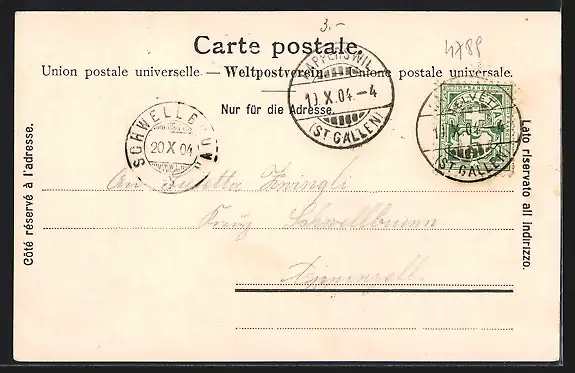 3.-
4789
Carte postale.
Union postale universelle. — Weltpostverein. — Unione postale universale.
Nur für die Adresse.
RAPPERSWIL
1 X.04.-4
(ST GALLEN)
HELVETIA
(ST GALLEN)
SCHWELLBRUNN
20 X 04
Côté réservé à l'adresse.
Lato riservato all indirizzo.
An Zwingli
Kreuz Schwellbrunn
Appenzell